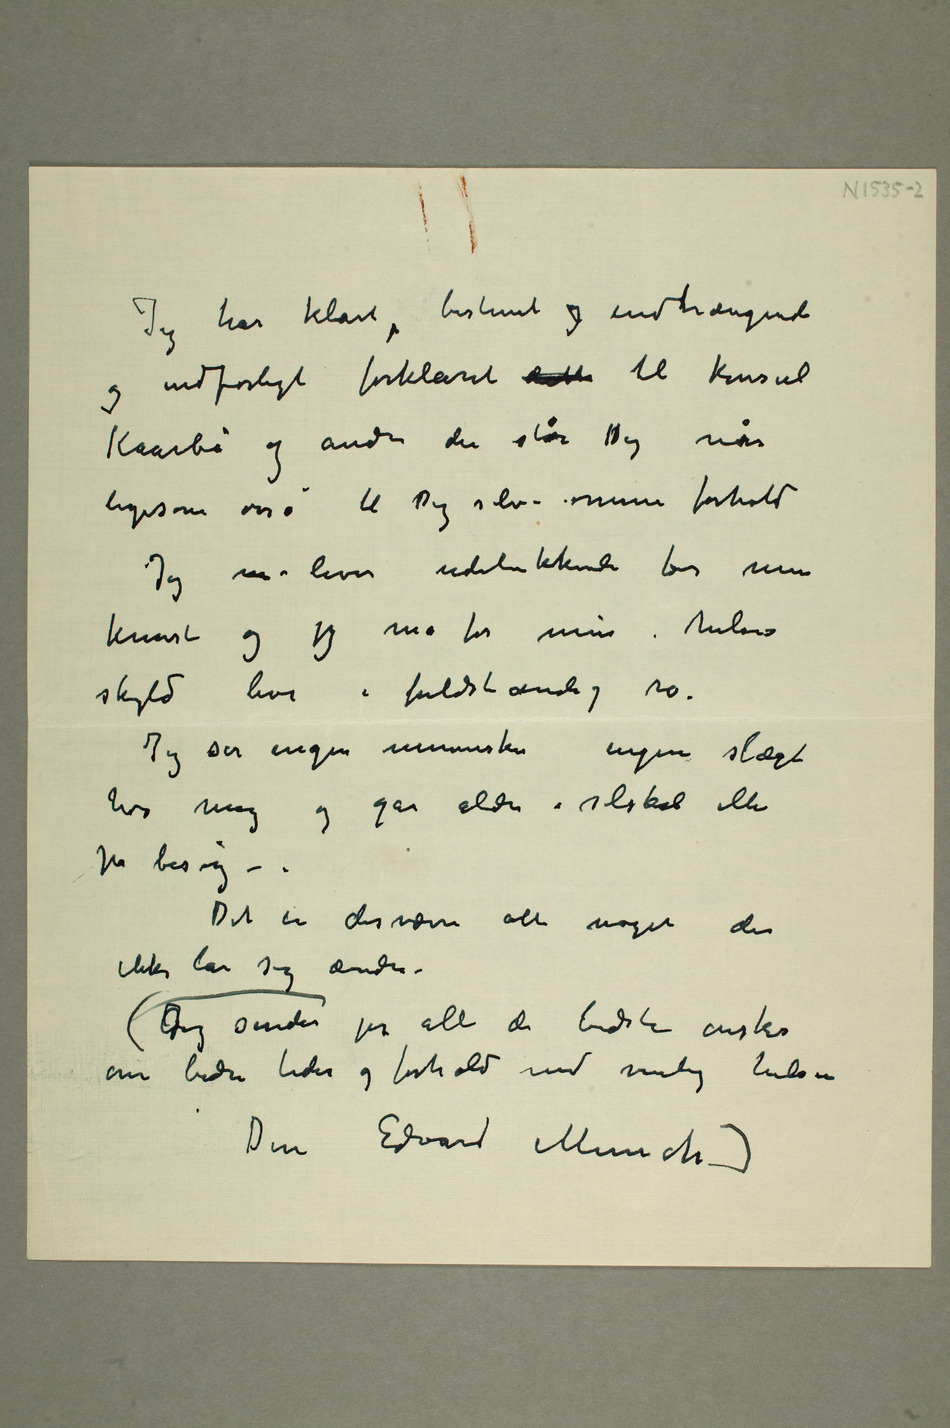 N1535-2
Jeg har klart, bestemt og indtrængende
og indførligt forklaret dette til Konsul
Kaarbø og andre der står Dig nær
ligesom også til Dig selv – mine forhold
Jeg må lever udelukkende for min
kunst og jeg må for min helses
skyld leve i fuldstændig ro.
Jeg ser ingen mennesker ingen slægt
hos mig og går aldri i selskab eller
på besøg –.
Det er desværre alt noget der
ikke lar sig ændre –
(Jeg sender jer alle de bedste ønsker
om bedre tider og forhold med venlig hilsen
Din Edvard Munch)